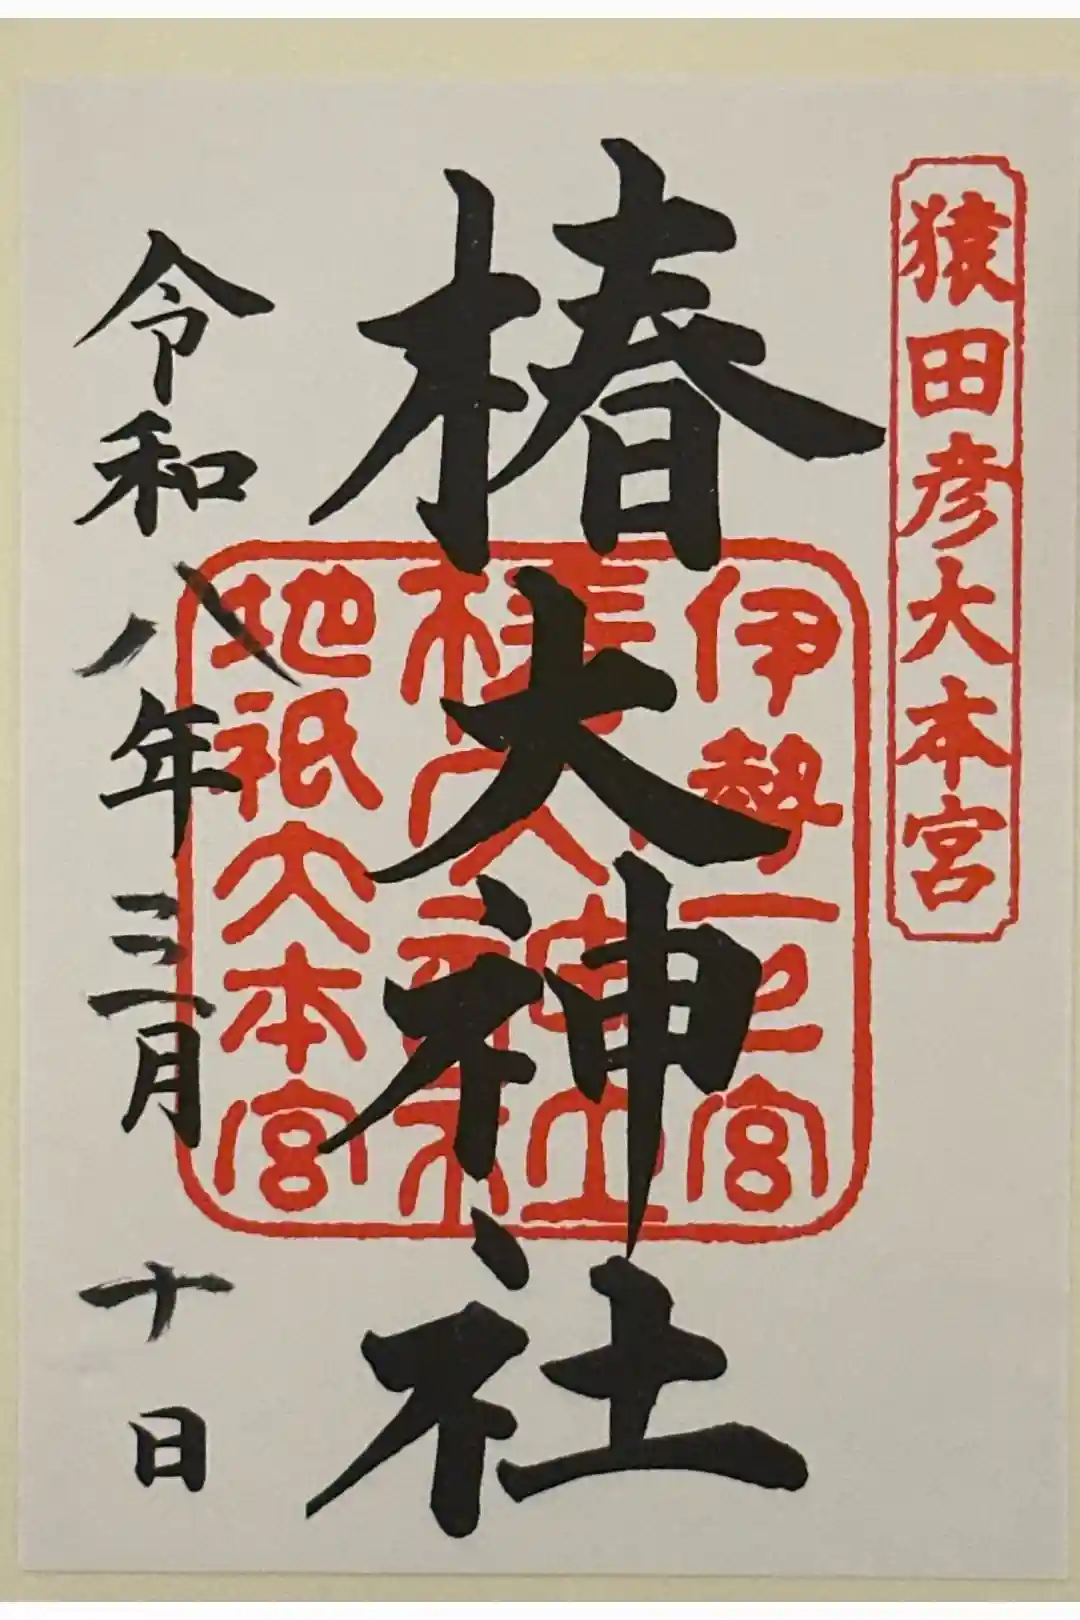 猿田彦大本宮
椿大神社
伊勢一之宮
椿大神社
地祇大本宮
令和八年三月十日